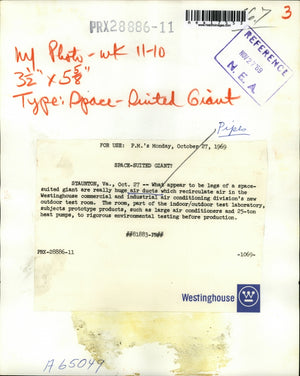 PRX28886-11
67
3
NY Photo - WK 11-10
3½" x 5⅝"
Type: Space-Suited Giant
REFERENCE
N.E.A.
Pipes
FOR USE: P.M's Monday, October 27, 1969
SPACE-SUITED GIANT?
STAUNTON, Va., Oct. 27 -- What appear to be legs of a space-
suited giant are really huge air ducts which recirculate air in the
Westinghouse commercial and industrial air conditioning division's new
outdoor test room. The room, part of the indoor/outdoor test laboratory,
subjects prototype products, such as large air conditioners and 25-ton
heat pumps, to rigorous environmental testing before production.
##81883-PM##
PRX-28886-11
-1069-
Westinghouse
A65049